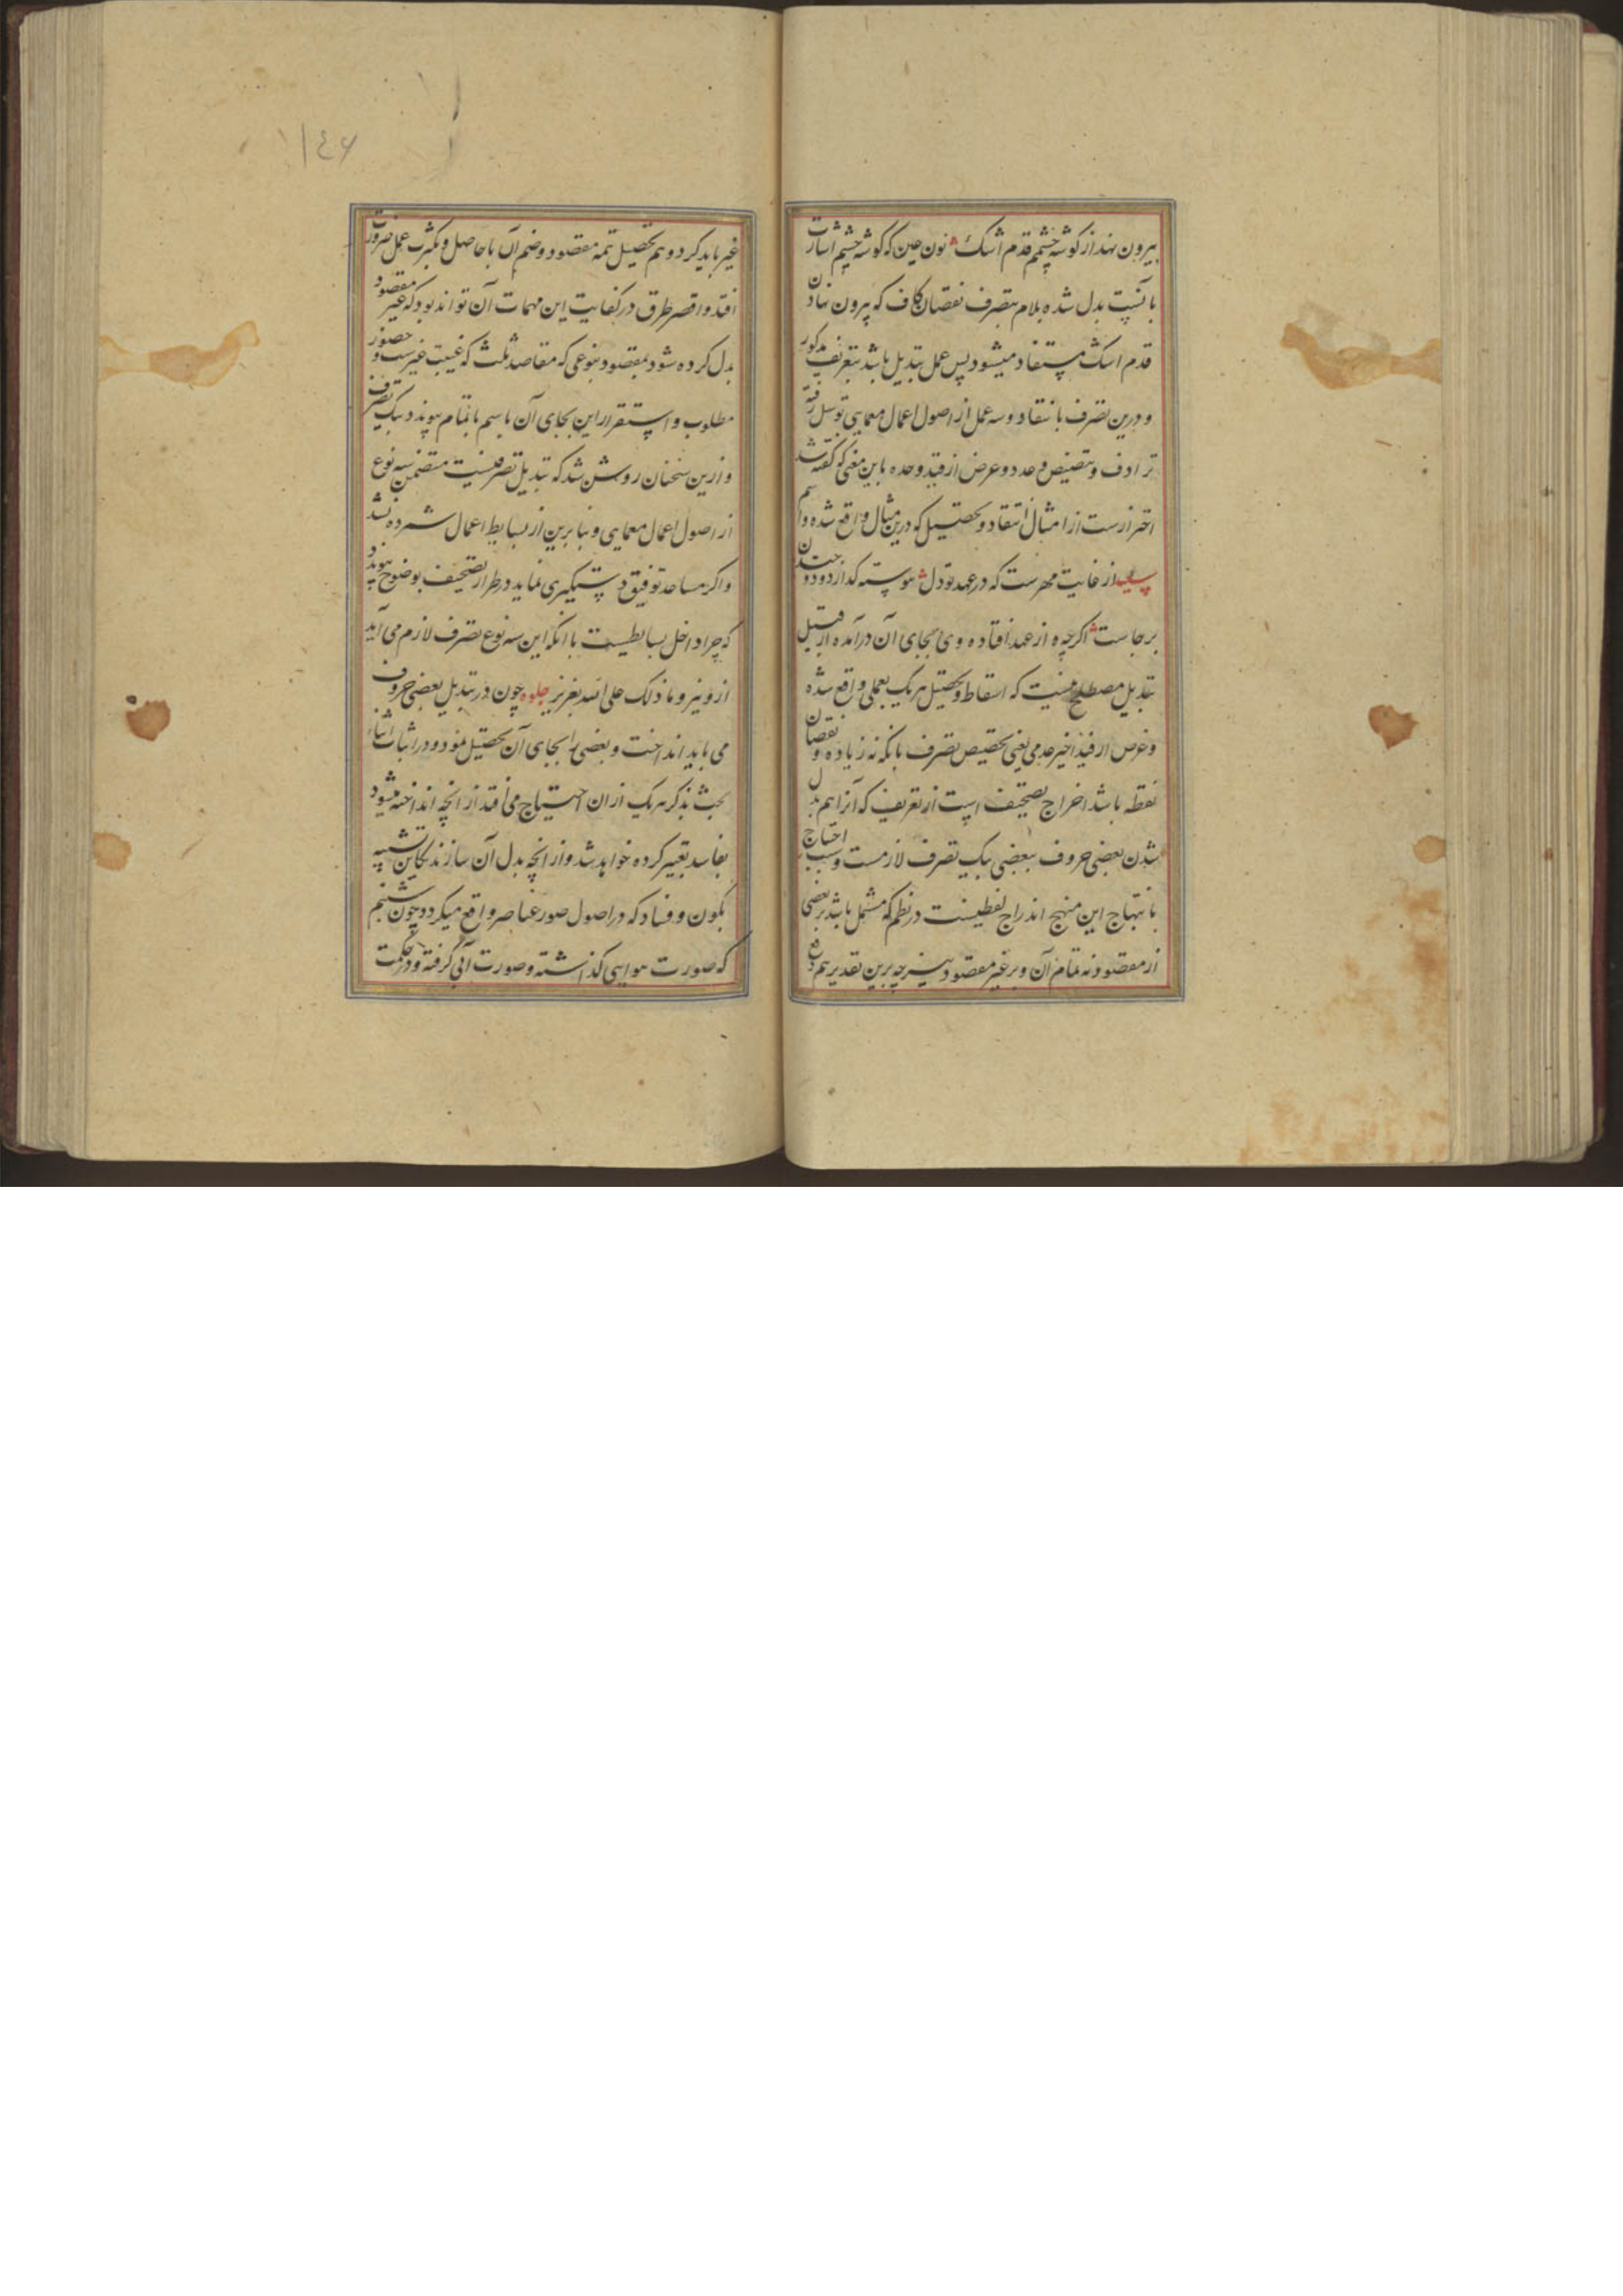 بیرون نهد از گوشه چشمم قدم اشک نون عین که گوشه چشم اشارت
بآنست بدل شده بلام بتصرف نقصان کاف که بیرون نهادن
قدم اشک مستفاد میشود پس عمل تبدیل باشد بتعریف مذکور
و درین تصرف بانتقاد و سه عمل از اصول اعمال معمایی توسل رفته
ترادف و تنصیص و عدد و غرض از قید وحده باین معنی که گفته شد
احترازست از امثال انتقاد و تحصیل که درین مثال واقع شده و اسم
از غایت مهرست که در عهد تو دل پیوسته گدازد و دو
برجاست اگر چه ه از عهد افتاده و ی بجای آن درآمده از قبیل
تبدیل مصطلح نیست که اسقاط و تحصیل هر یک بعملی واقع شده
و غرض از قید اخیر عدمی یعنی تخصیص تصرف بانکه نه زیاده و نقصان
نقطه باشد اخراج تصحیف است از تعریف که آنرا هم بدل
شدن بعضی حروف ببعضی بیک تصرف لازمست و سبب احتیاج
بانتهاج این منهج اندراج لفظیست در نظم که مشتمل باشد بر بعضی
از مقصود نه تمام آن و بر غیر مقصود نیز چه برین تقدیر هم دفع
۱۴۶
غیر باید کرد و هم تحصیل تتمه مقصود و ضم آن با حاصل و بکثرت عمل ضرورت
افتد و اقصر طرق در کفایت این مهمات آن تواند بود که غیر مقصود
بدل کرده شود بمقصود بنوعی که مقاصد ثلث که غیبت غیرست و حضور
مطلوب و استقرار این بجای آن باسم باتمام پیوندد بیک تصرف
و ازین سخنان روشن شد که تبدیل تصرفیست متضمن سه نوع
از اصول اعمال معمایی و بنابرین از بسایط اعمال شمرده نشد
و اگر مساعد توفیق دستگیری نماید در طراز تصحیف بوضوح پیوندد
که چرا داخل بسایطیست با آنکه این سه نوع تصرف لازم می آید
ازو نیز و ما ذلک علی الله بعزیز جلوه چون در تبدیل بعضی حروف
می باید انداخت و بعضی را بجای آن تحصیل نمود و در اثبات اثناء
بحث بذکر هر یک از آن احتیاج می افتد از آنچه انداخته میشود
بفاسد تعبیر کرده خواهد شد و از آنچه بدل آن سازند بکاین تشبیه
بکون و فساد که در اصول صور عناصر واقع میگردد چون شبنم
که صورت هوایی گذاشته و صورت آبی گرفته و در حکمت